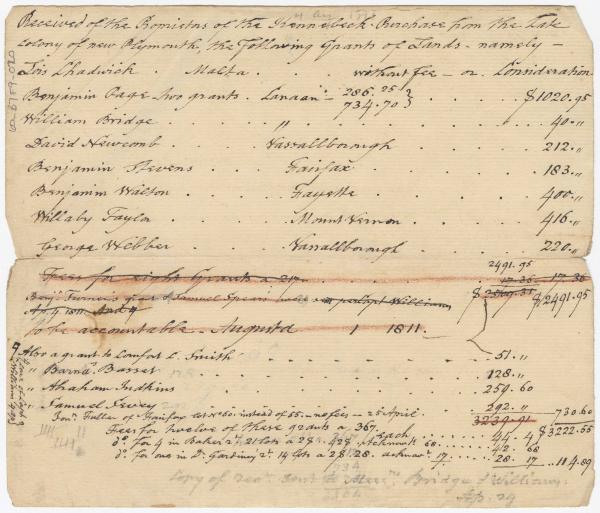 Received of the Proprietors of the Kennebeck Purchase from the Late
Colony of new Plymouth, the Following Grants of Lands. namely —
Lois Chadwick . Malta . . without fee — or Consideration
Benjamin Page two grants . Canaan 286.25 } . . $1020.95
734.70 }
William Bridge . . " . . . . 40. "
David Newcomb . Vassallborough . . . 212. "
Benjamin Stevens . . Fairfax . . . 183. "
Benjamin Walton . . Fayette . . . 400. "
Willaby Taylor . . Mount Vernon . . . 416. "
George Webber . . Vassallborough . . . 220. "
2491.95
Fees for eight Grants a 217 . . . 17.36 17.36
$ 2509.31 $2491.95
Benj Turner's & Samuel Spear
Ap. 4 1811. And 4
to be accountable — Augusta 1 1811.
Also a grant to Comfort C. Smith . . . 51. "
" Barna. Basset . . . 128. "
" Abraham Judkins . . . 259.60
" Samuel Fevey . . . 292. " 730.60
Jona. Fuller of Fairfax instead of 55 — no fees — 25 April . 3239.91
$3222.55
Fees for twelve of these grants a 367 each . . 44. 4
do. for 4 in Baker's 21 lots a 28 . 42. 68
do. for one in Dr. Gardiner's 14 lots a 28 . 28. 17 . . 28. 17 . . 114.89
734
Copy of sent to Bridge & Williams
Ap. 29